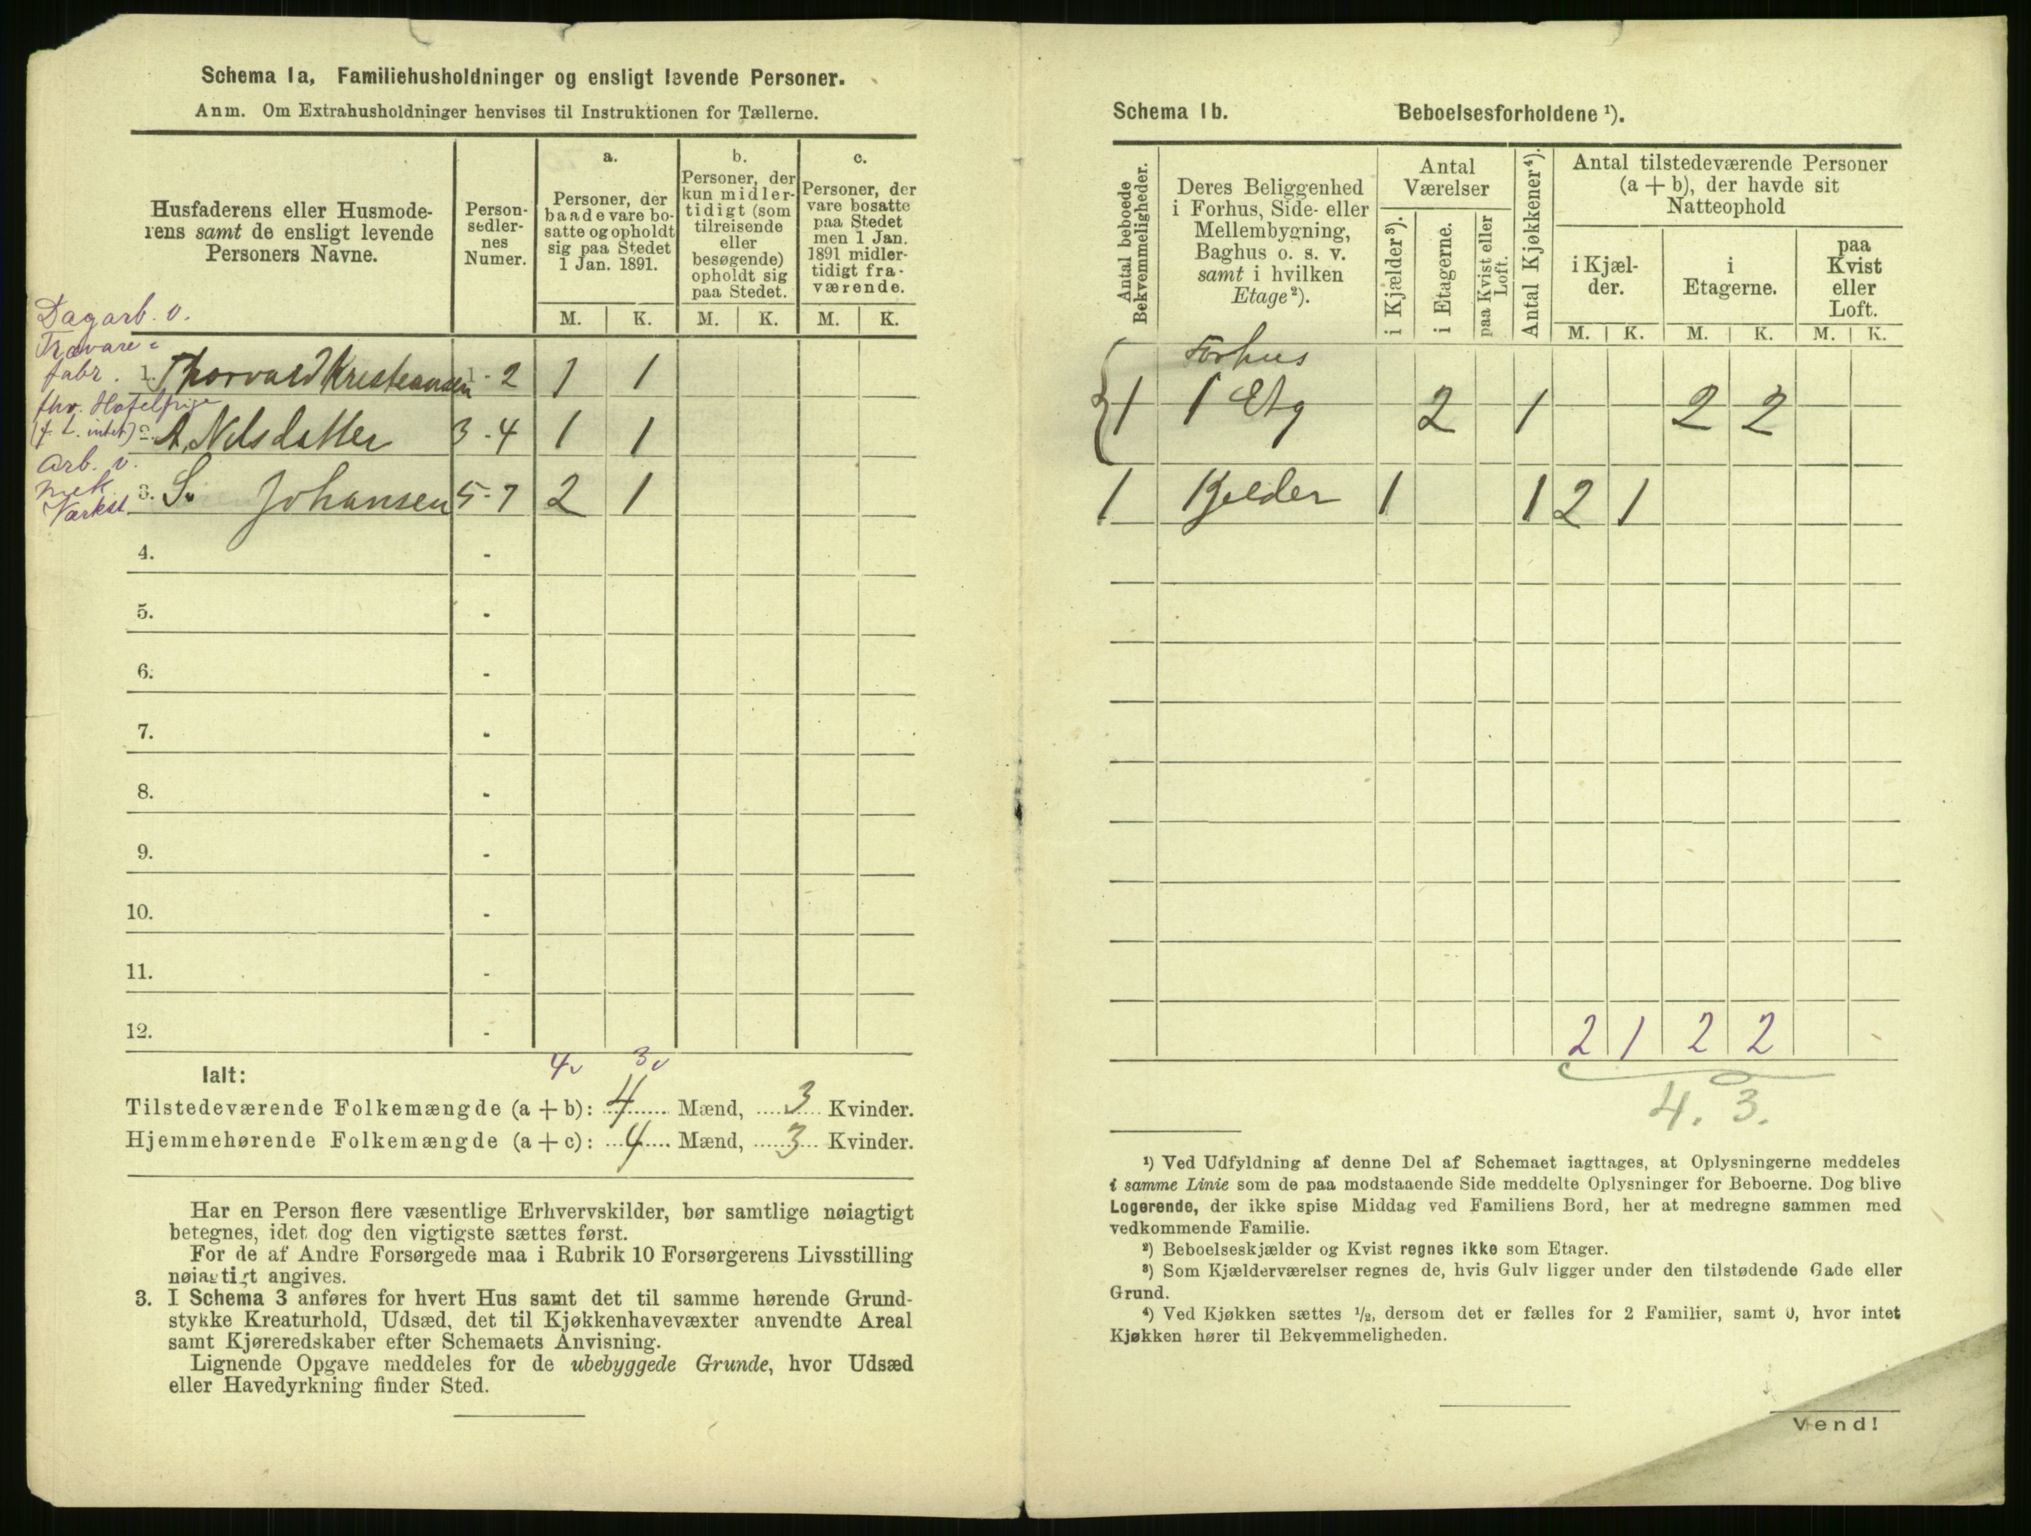 Schema 1a, Familiehusholdninger og ensligt levende Personer.
Anm. Om Extrahusholdninger henvises til Instruktionen for Tællerne.
Husfaderens eller Husmode-
rens samt de ensligt levende
Personers Navne.
Person-
sedler-
nes
Numer.
a.
Personer, der
baade vare bo-
satte og opholdt
sig paa Stedet
1 Jan. 1891.
b.
Personer, der
kun midler-
tidigt (som
tilreisende
eller
besøgende)
opholdt sig
paa Stedet.
c.
Personer, der
vare bosatte
paa Stedet
men 1 Jan.
1891 midler-
tidigt fra-
værende.
M. K. M. K. M. K.
Dagarb. v.
Trævare
fabr.
1. Thorvald Kristiansen 1 - 2 1 1
fhv. Hotelpige
(f. t. intet)
2. A. Nilsdatter 3 - 4 1 1
Arb. v.
mek.
Værkst.
3. S. Johansen 5 - 7 2 1
4. -
5. -
6. -
7. -
8. -
9. -
10. -
11. -
12. -
4 v 3 v
Ialt:
Tilstedeværende Folkemængde (a + b): 4 Mænd, 3 Kvinder.
Hjemmehørende Folkemængde (a + c): 4 Mænd, 3 Kvinder.
Har en Person flere væsentlige Erhvervskilder, bør samtlige nøiagtigt
betegnes, idet dog den vigtigste sættes først.
For de af Andre Forsørgede maa i Rubrik 10 Forsørgerens Livsstilling
nøiagtigt angives.
3. I Schema 3 anføres for hvert Hus samt det til samme hørende Grund-
stykke Kreaturhold, Udsæd, det til Kjøkkenhavevæxter anvendte Areal
samt Kjøreredskaber efter Schemaets Anvisning.
Lignende Opgave meddeles for de ubebyggede Grunde, hvor Udsæd
eller Havedyrkning finder Sted.
Schema 1b. Beboelsesforholdene ¹).
Antal beboede
Bekvemmeligheder.
Deres Beliggenhed
i Forhus, Side- eller
Mellembygning,
Baghus o. s. v.
samt i hvilken
Etage ²).
Antal
Værelser
i Kjælder ³).
i Etagerne.
paa Kvist eller
Loft.
Antal Kjøkkener ⁴).
Antal tilstedeværende Personer
(a + b), der havde sit
Natteophold
i Kjæl-
der.
i
Etagerne.
paa
Kvist
eller
Loft.
M. K. M. K. M. K.
Forhus
1 1 Etg 2 1 2 2
1 Kjelder 1 1 2 1
2 1 2 2
4. 3.
¹) Ved Udfyldning af denne Del af Schemaet iagttages, at Oplysningerne meddeles
i samme Linie som de paa modstaaende Side meddelte Oplysninger for Beboerne. Dog blive
Logerende, der ikke spise Middag ved Familiens Bord, her at medregne sammen med
vedkommende Familie.
²) Beboelseskjælder og Kvist regnes ikke som Etager.
³) Som Kjælderværelser regnes de, hvis Gulv ligger under den tilstødende Gade eller
Grund.
⁴) Ved Kjøkken sættes ½, dersom det er fælles for 2 Familier, samt 0, hvor intet
Kjøkken hører til Bekvemmeligheden.
Vend!